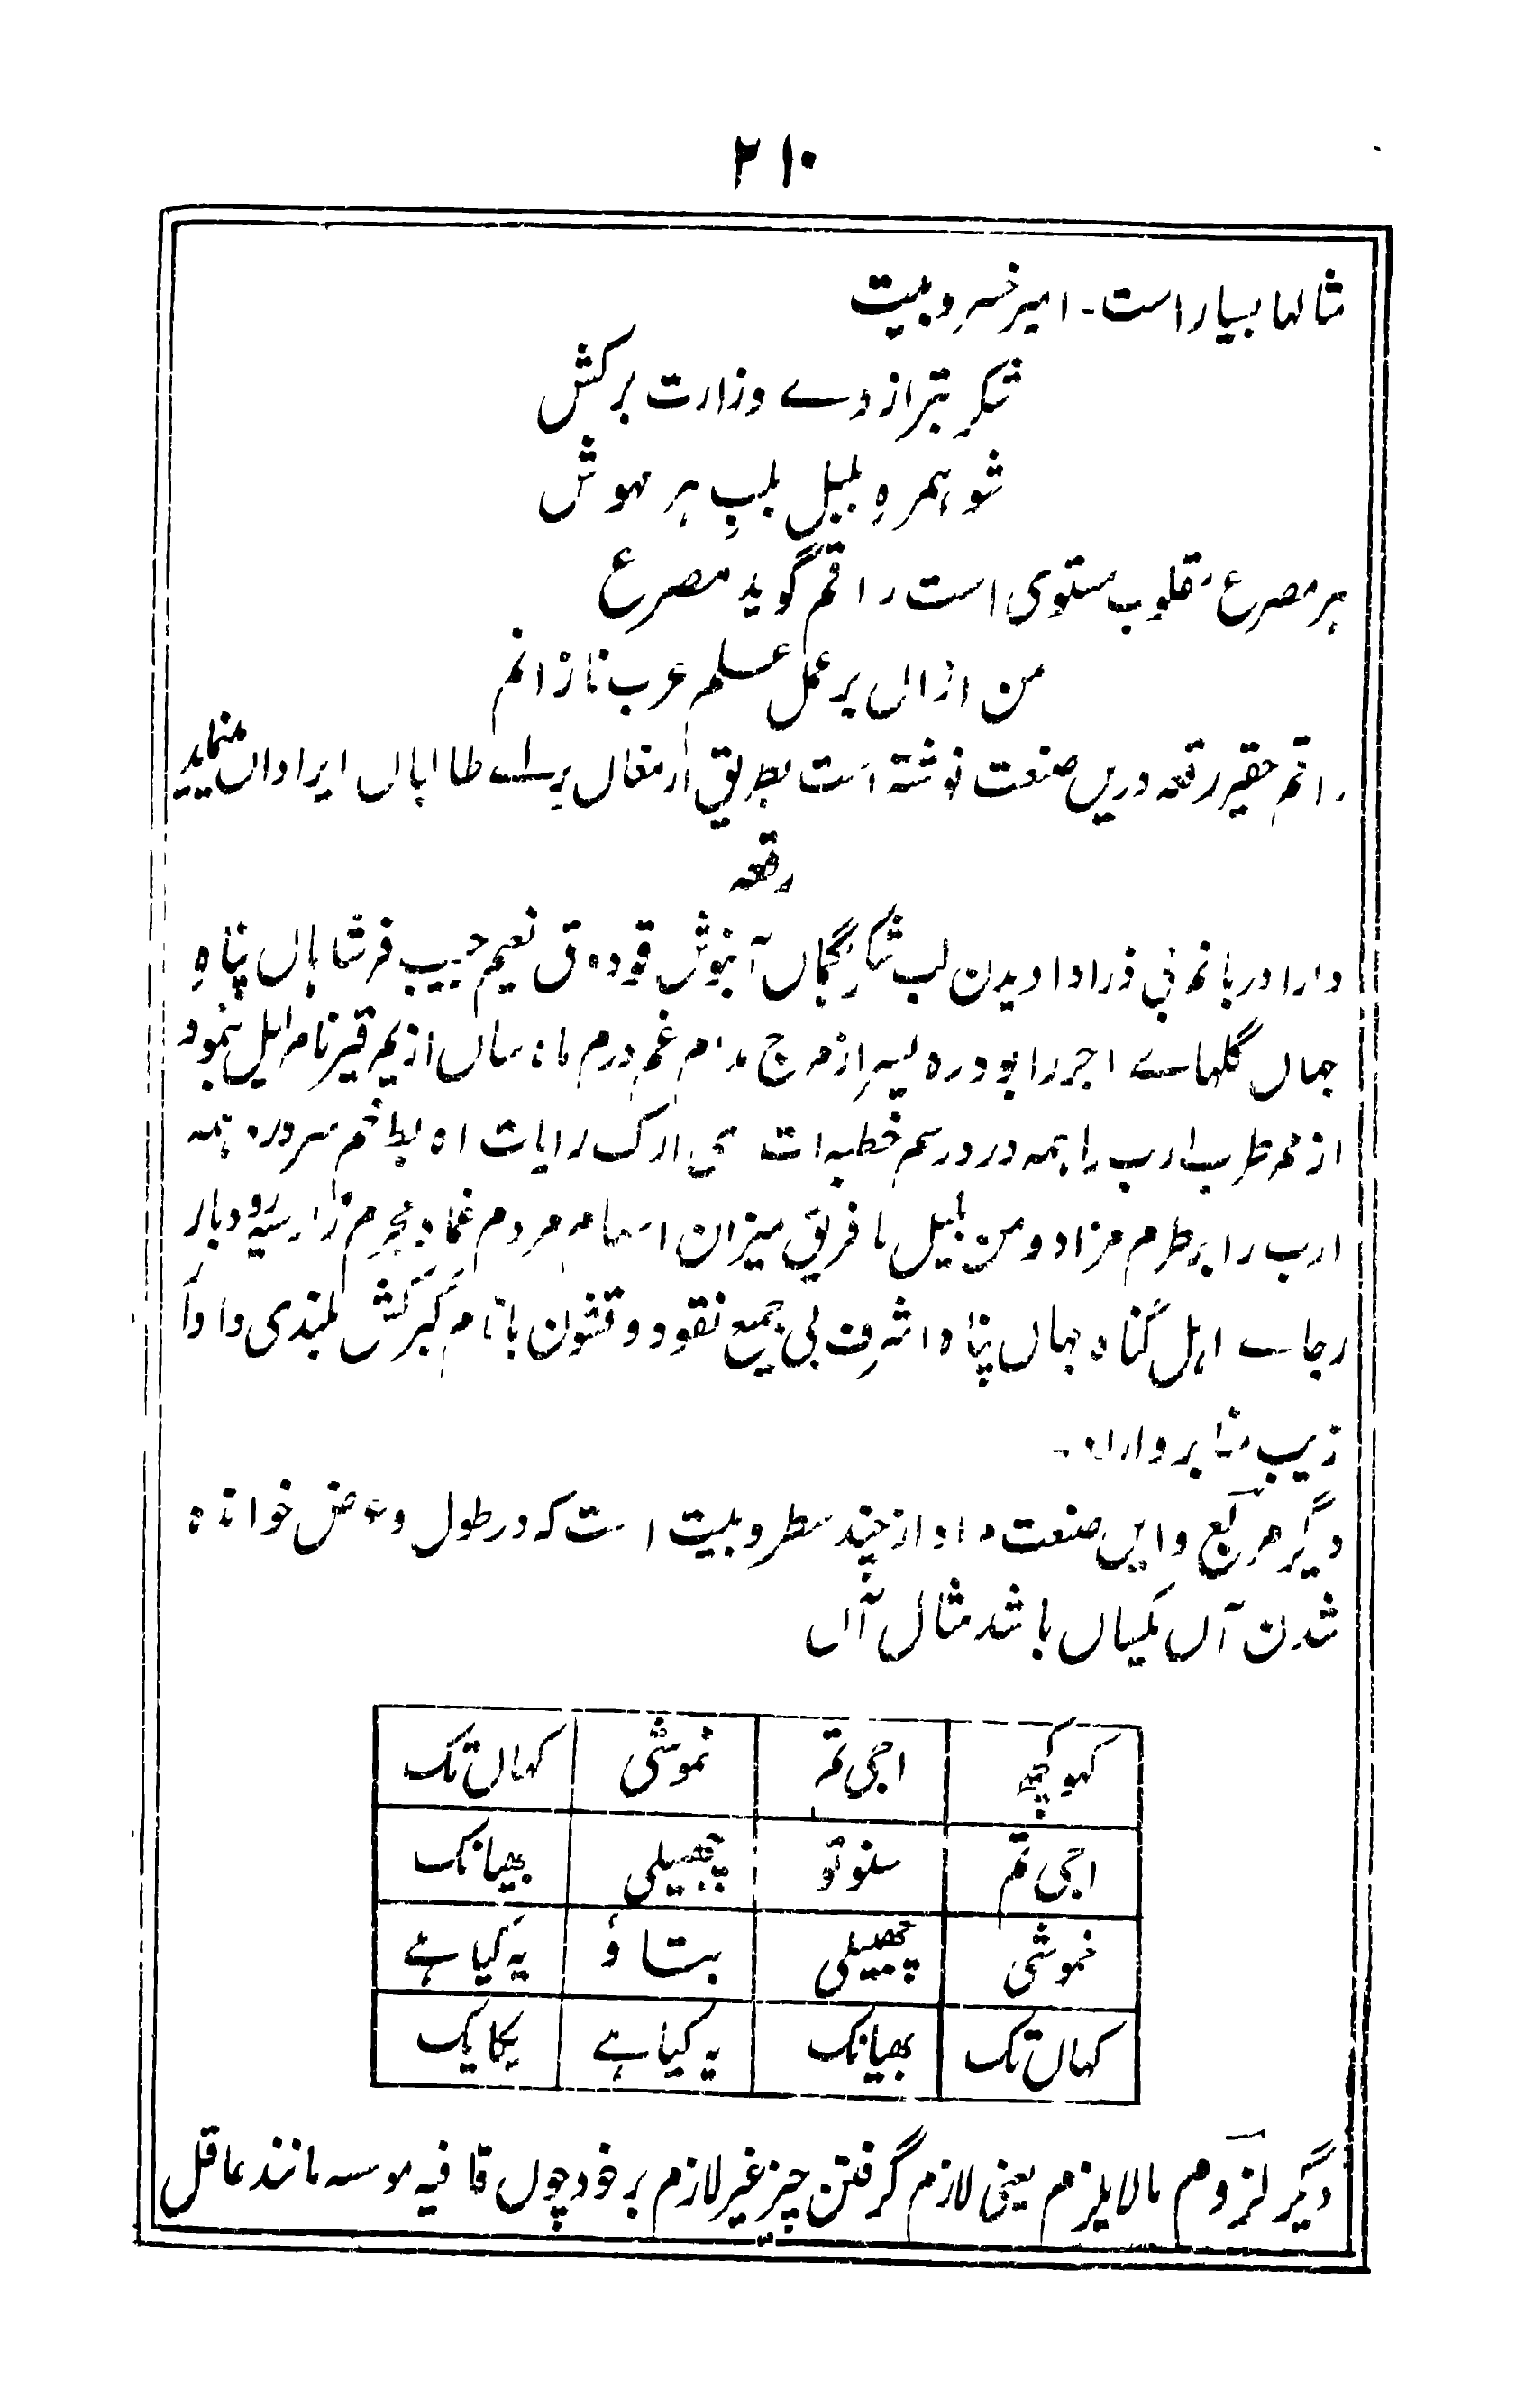 ۲۱۰
مثالها بسیار است۔ امیر خسرو بیت
شکر بترازوے وزارت برکش
شو ہمرہِ بلبل بلبِ ہر مہوش
ہر مصرع مقلوب مستوی است راقم گوید مصرع
من ازاں بر عمل علم عرب نازانم
راقم حقیر رقعہ دریں صنعت نوشتہ است بطریق ارمغاں براے طالباں ایراد آں مینماید
رقعہ
دارا در بانم فی ذرا دا دیدن لب شکر آبنوش قو ذوق نعیم حبیب فر شاہاں پناہِ
جہاں گلہاے اجر را بود رہ از موج مدام غم درم مانند ساں از یم قیر نامہ اہل بنمود
از طرب ادب را ہمہ درد و رسم خطبہ ات ارک رایات اہ بط خم سرورہ ہمہ
ادب را بر طرم مزاد و من بلبل ما فریق میزان اسامہ مردم غماد مجرم زار سیہ رو دبار
رجاے اہل گناہ جہاں پناہ اشرف بی جمیع نقود و قشون بانام کبرکش بلندی دا دا
زیب منابر وارد۔
دیگر مربع و ایں صنعت مراد از چند سطر و بیت است کہ در طول و عرض خواندہ
شدن آں یکساں باشد مثال آں
کہو کچھ اجی تم خموشی کہاں تک
اجی تم سنو تو چھبیلی بھیانک
خموشی چھبیلی بتاؤ یہ کیا ہے
کہاں تک بھیانک یہ کیا ہے یکایک
دیگر لزوم مالا یلزم یعنی لازم گرفتن چیز غیر لازم بر خود چوں قافیہ موسسہ مانند عاقل